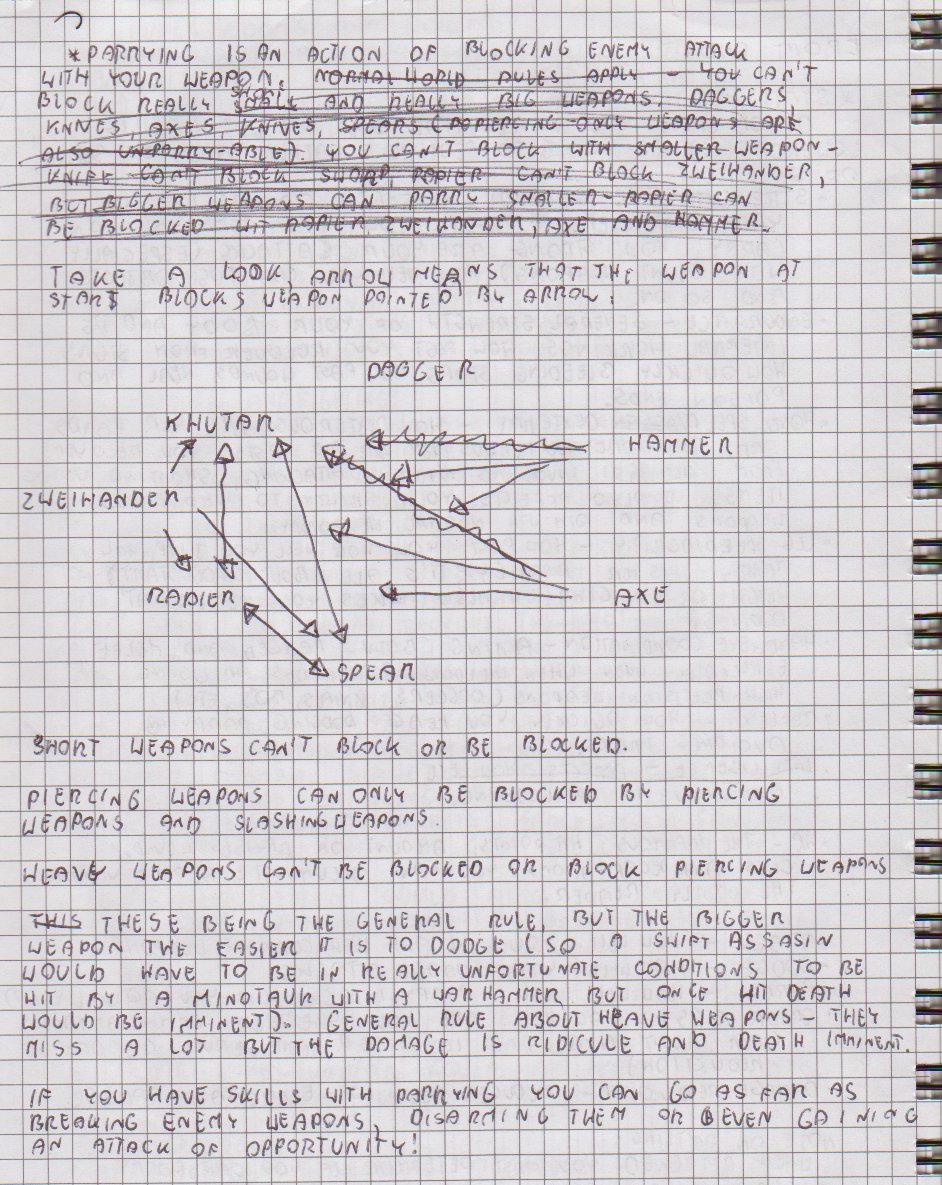 *PARRYING IS AN ACTION OF BLOCKING ENEMY ATTACK
WITH YOUR WEAPON. NORMAL WORLD RULES APPLY - YOU CAN'T
BLOCK REALLY SMALL AND REALLY BIG WEAPONS. DAGGERS,
KNIVES, AXES, KNIVES, SPEARS (PIERCING-ONLY WEAPONS ARE
ALSO UNPARRY-ABLE). YOU CAN'T BLOCK WITH SMALLER WEAPON -
KNIFE CAN'T BLOCK SWORD, RAPIER CAN'T BLOCK ZWEIHANDER,
BUT BIGGER WEAPONS CAN PARRY SMALLER - RAPIER CAN
BE BLOCKED WIT RAPIER, ZWEIHANDER, AXE AND HAMMER.
TAKE A LOOK, ARROW MEANS THAT THE WEAPON AT
START BLOCKS WEAPON POINTED BY ARROW.
DAGGER
KHUTAR
HAMMER
ZWEIHANDER
RAPIER
AXE
SPEAR
SHORT WEAPONS CAN'T BLOCK OR BE BLOCKED.
PIERCING WEAPONS CAN ONLY BE BLOCKED BY PIERCING
WEAPONS AND SLASHING WEAPONS.
HEAVY WEAPONS CAN'T BE BLOCKED OR BLOCK PIERCING WEAPONS
THIS THESE BEING THE GENERAL RULE, BUT THE BIGGER
WEAPON THE EASIER IT IS TO DODGE (SO A SWIFT ASSASIN
WOULD HAVE TO BE IN REALLY UNFORTUNATE CONDITIONS TO BE
HIT BY A MINOTAUR WITH A WARHAMMER BUT ONCE HIT DEATH
WOULD BE IMMINENT). GENERAL RULE ABOUT HEAVE WEAPONS - THEY
MISS A LOT BUT THE DAMAGE IS RIDICULE AND DEATH IMMINENT.
IF YOU HAVE SKILLS WITH PARRYING YOU CAN GO AS FAR AS
BREAKING ENEMY WEAPONS, DISARMING THEM OR EVEN GAINING
AN ATTACK OF OPPORTUNITY!